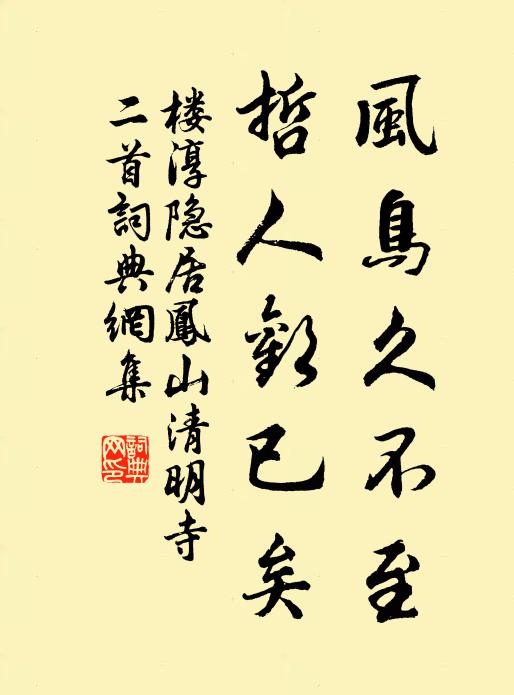 風鳥久不至
哲人歎已矣
楼淳隐居鳳山清明寺
二首詞典網集
詞典
网印